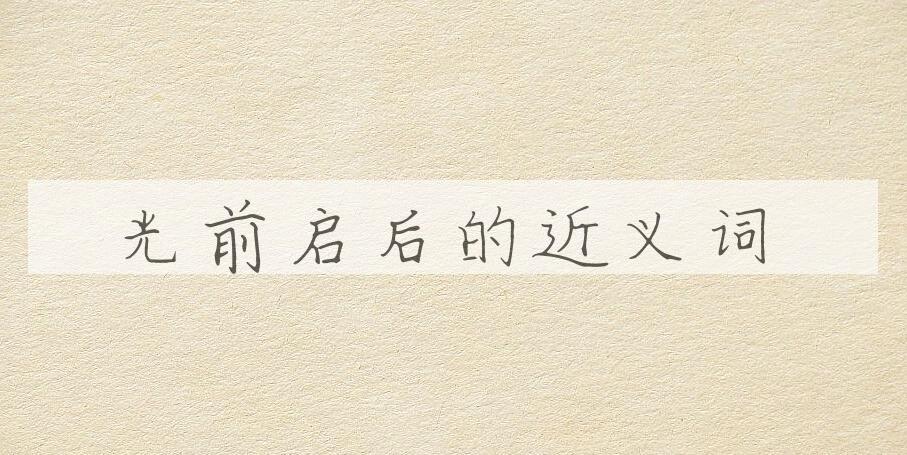 光前启后的近义词